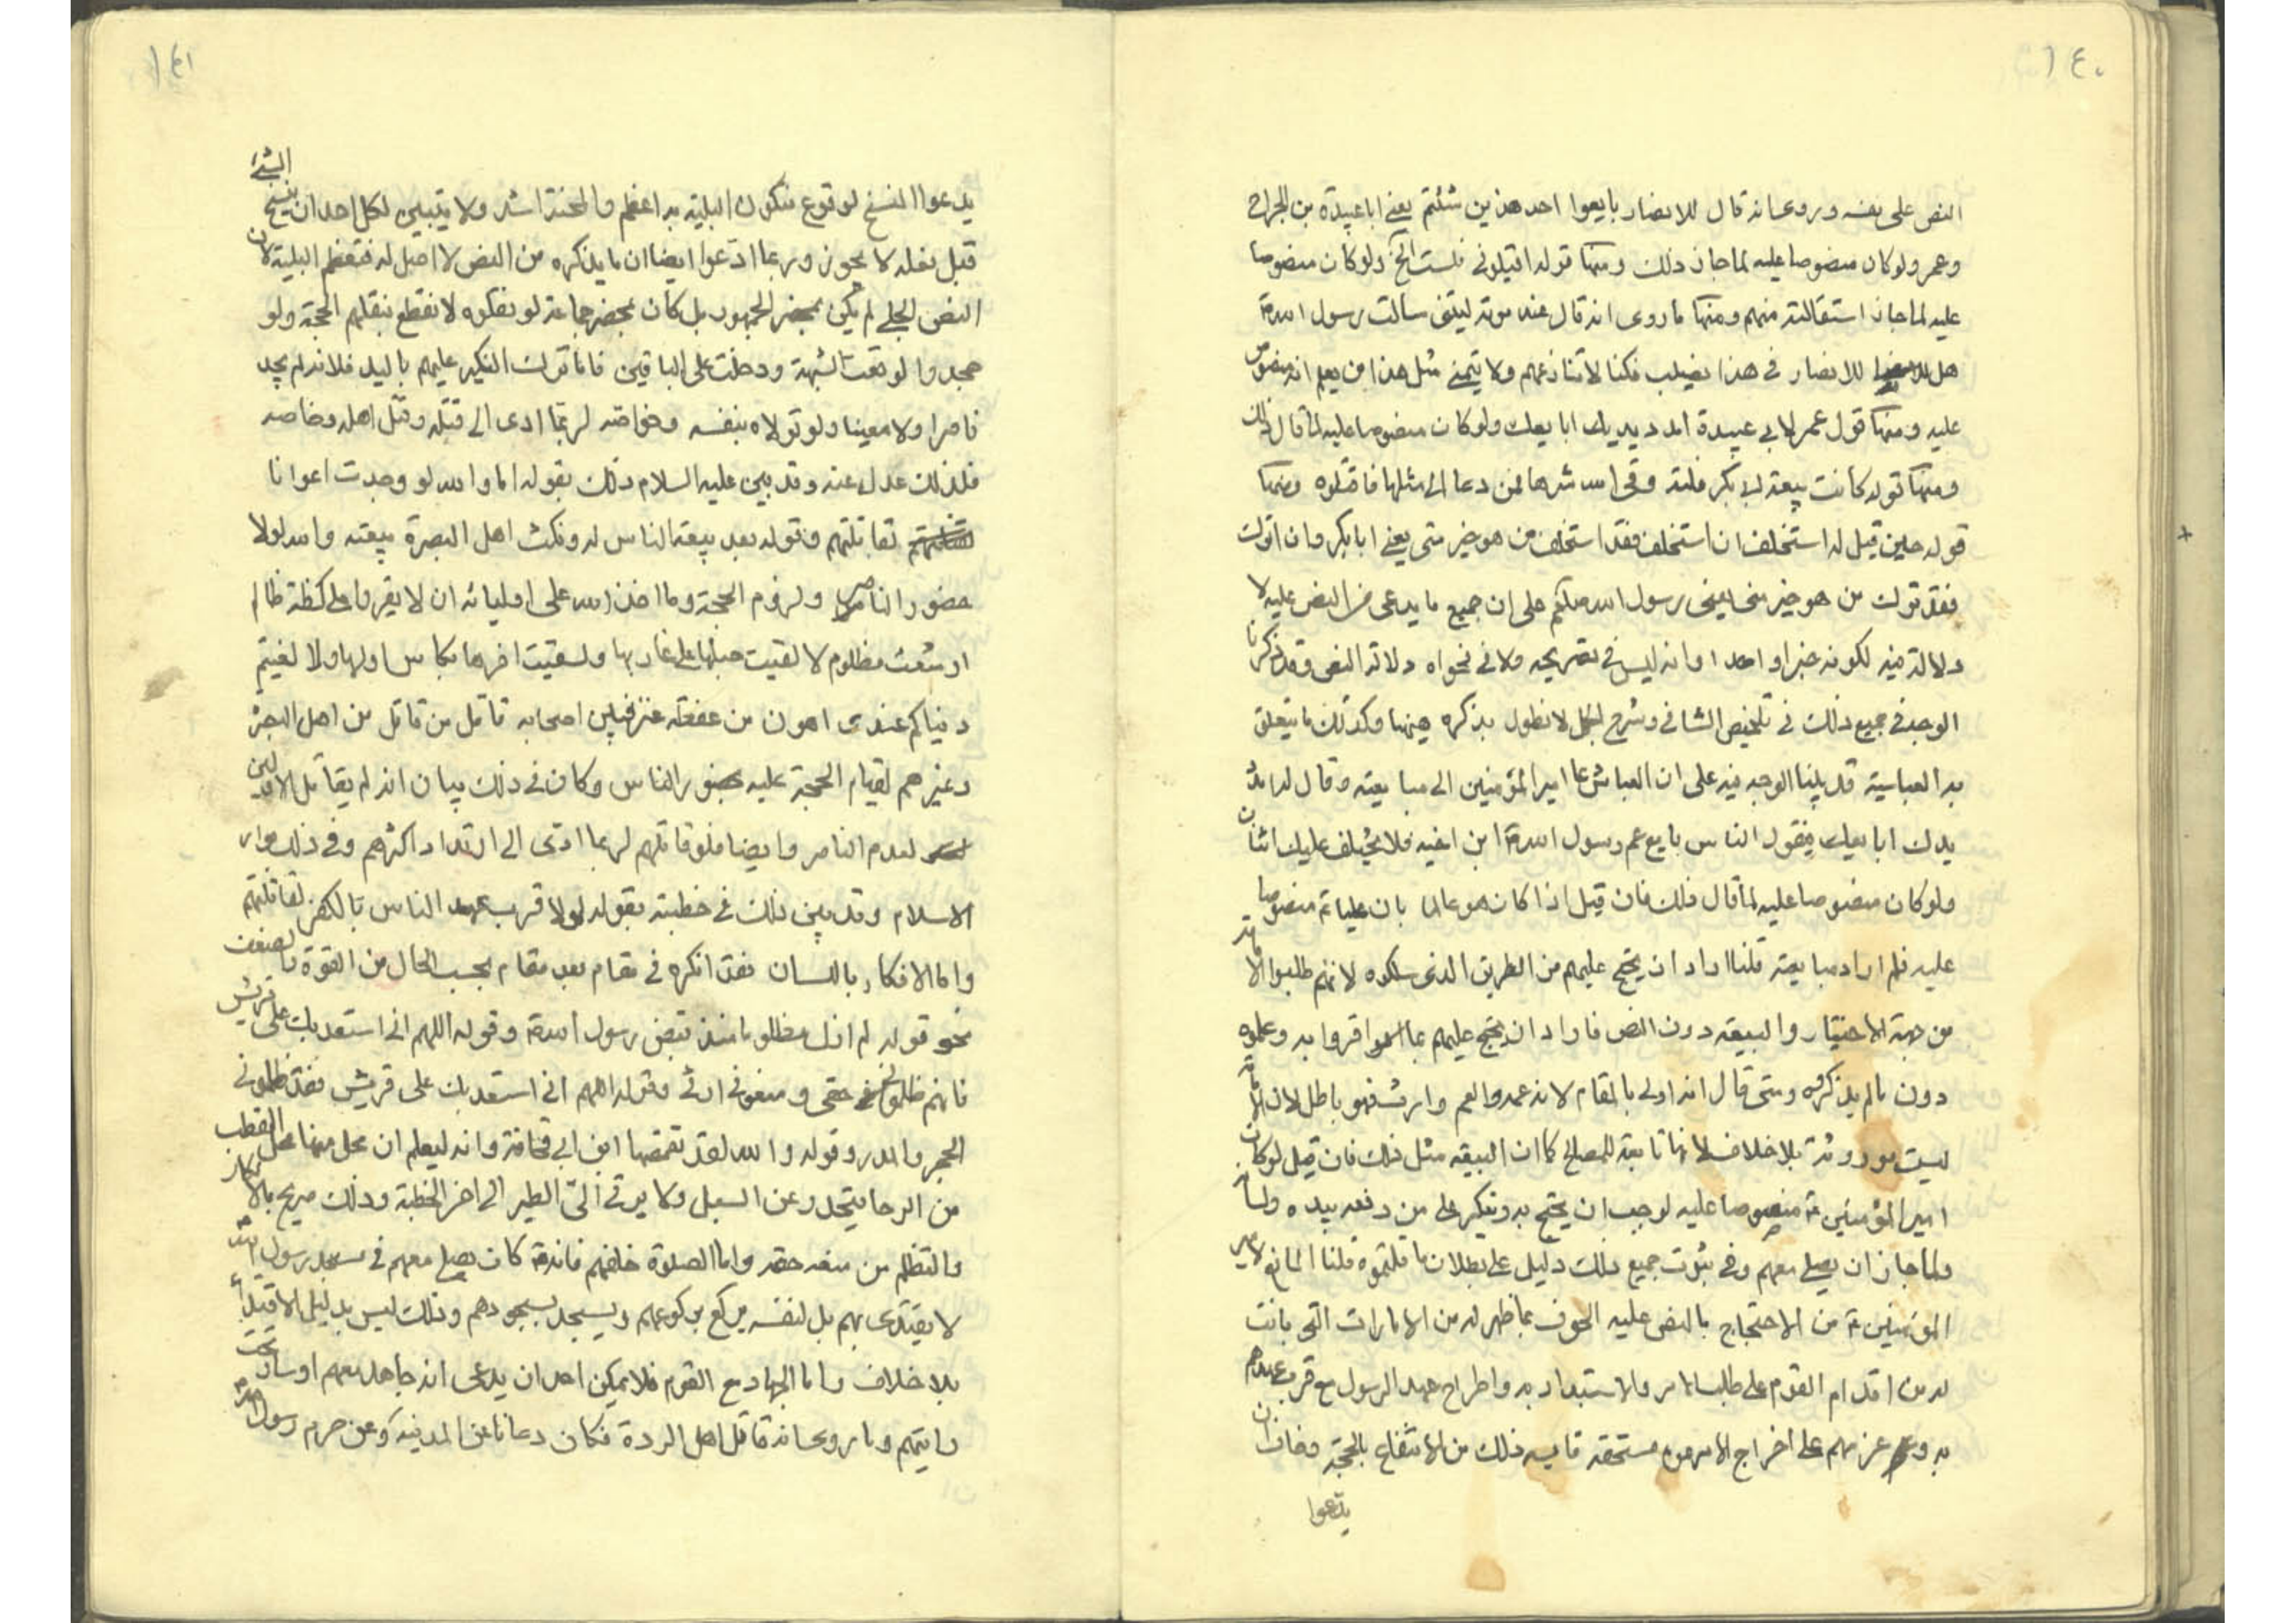 ١٤٠
النص على نفسه وروى انه قال للانصار بايعوا احد هذين شئتم يعني ابا عبيدة بن الجراح
وعمر ولو كان منصوصا عليه لما جاز ذلك ومنها قوله اقيلوني فلست الخ ولو كان منصوصا
عليه لما جاز استقالته منهم ومنها ما روى انه قال عند موته ليتني سألت رسول الله ص
هل للانصار في هذا نصيب فكنا لا ننازعهم ولا يتمنى مثل هذا من يعلم انه منصوص
عليه ومنها قول عمر لابي عبيدة امدد يديك ابايعك ولو كان منصوصا عليه لما قال ذلك
ومنها قوله كانت بيعة لابي بكر فلتة وقى الله شرها فمن دعا الى مثلها فاقتلوه ومنها
قوله حين قيل له استخلف ان استخلف فقد استخلف من هو خير مني يعني ابا بكر وان اترك
فقد ترك من هو خير مني يعني رسول الله صلعم على ان جميع ما يدعى من النص عليه لا
دلالة فيه لكونه خبرا واحدا وانه ليس في تصريحه ولا في فحواه دلالة النص وقد ذكرنا
الوجه في جميع ذلك في تلخيص الشافي وشرح الجمل لا نطول بذكره هيهنا وكذلك ما يتعلق
به العباسية قد بينا الوجه فيه على ان العباس دعا امير المؤمنين الى مبايعته وقال له امدد
يدك ابايعك فيقول الناس بايع عم رسول الله ص ابن اخيه فلا يختلف عليك اثنان
ولو كان منصوصا عليه لما قال ذلك فان قيل اذا كان هو عالما بان عليا ع منصوصا
عليه فلم اراد مبايعته قلنا اراد ان يحتج عليهم من الطريق الذي سلكوه لانهم طلبوا الامامة
من جهة الاختيار والبيعة دون النص فاراد ان يحتج عليهم بما اقروا به وعلموه
دون ما لم يذكروه ومتى قال انه اولى بالمقام لانه عمه والعم وارث فهو باطل لان الامامة
ليست موروثة بلا خلاف لانها تابعة للمصالح كما ان البيعة مثل ذلك فان قيل لو كان
امير المؤمنين ع منصوصا عليه لوجب ان يحتج به وينكر على من دفعه بيده ولسانه
ولما جاز ان يصلي معهم وفي ثبوت جميع ذلك دليل على بطلان ما قلتموه قلنا المانع لامير
المؤمنين ع من الاحتجاج بالنص عليه الخوف بما ظهر له من الامارات التي بانت
له من اقدام القوم على طلب الامر والاستبداد به واطراح عهد الرسول مع قرب عهدهم
به وعزمهم على اخراج الامر من مستحقه فايسه ذلك من الانتفاع بالحجة وخاف ان
يدعوا
١٤١
يدعوا النسخ لوقوع فتكون البلية به اعظم والمحنة اشد ولا يتبين لكل احد ان نسخ الشيء
قبل فعله لا يجوز وربما ادعوا ايضا ان ما يذكره من النص لا اصل له فتعظم البلية لان
النص الجلي لم يكن بمحضر الجمهور بل كان بمحضر جماعة لو نقلوه لانقطع بنقلهم الحجة ولو
جحدوا لوقعت الشبهة ودخلت على الباقين فاما ترك النكير عليهم باليد فلانه لم يجد
ناصرا ولا معينا ولو تولاه بنفسه وخواصه لربما ادى الى قتله وقتل اهله وخاصه
فلذلك عدل عنه وقد بين عليه السلام ذلك بقوله اما والله لو وجدت اعوانا
لقاتلتهم وقوله بعد بيعة الناس له ونكث اهل البصرة بيعته والله لولا
حضور الناصر ولزوم الحجة وما اخذ الله على اوليائه ان لا يقروا على كظة ظالم
او سغب مظلوم لالقيت حبلها على غاربها ولسقيت اخرها بكاس اولها ولالفيتم
دنياكم عندي اهون من عفطة عنز فبين اصحابه قاتل من قاتل من اهل البصرة
وغيرهم لقيام الحجة عليه بحضور الناس وكان في ذلك بيان انه لم يقاتل الاولين
لعدم الناصر وايضا فلو قاتلهم لربما ادى الى ارتداد اكثرهم وفي ذلك بوار
الاسلام وقد بين ذلك في خطبته بقوله لولا قرب عهد الناس بالكفر لقاتلتهم
واما الانكار باللسان فقد انكره في مقام بعد مقام بحسب الحال من القوة والضعف
نحو قوله لم ازل مظلوما منذ قبض رسول الله ص وقوله اللهم اني استعديك على قريش
فانهم ظلموني حقي ومنعوني ارثي وقوله اللهم اني استعديك على قريش فقد ظلموني
الحجر والمدر وقوله والله لقد تقمصها ابن ابي قحافة وانه ليعلم ان محلي منها محل القطب
من الرحا يتحدر عني السيل ولا يرقى الي الطير الى اخر الخطبة وذلك صريح بالانكار
والتظلم من منعه حقه واما الصلوة خلفهم فانه ع كان يصلي معهم في مسجد رسول الله
لا يقتدي بهم بل لنفسه يركع بركوعهم ويسجد بسجودهم وذلك ليس بدليل الاقتداء
بلا خلاف واما الجهاد مع القوم فلا يمكن احد ان يدعي انه جاهد معهم او سار تحت
رايتهم وما روى انه قاتل اهل الردة فكان دعانا عن المدينة وعن حرم رسول الله